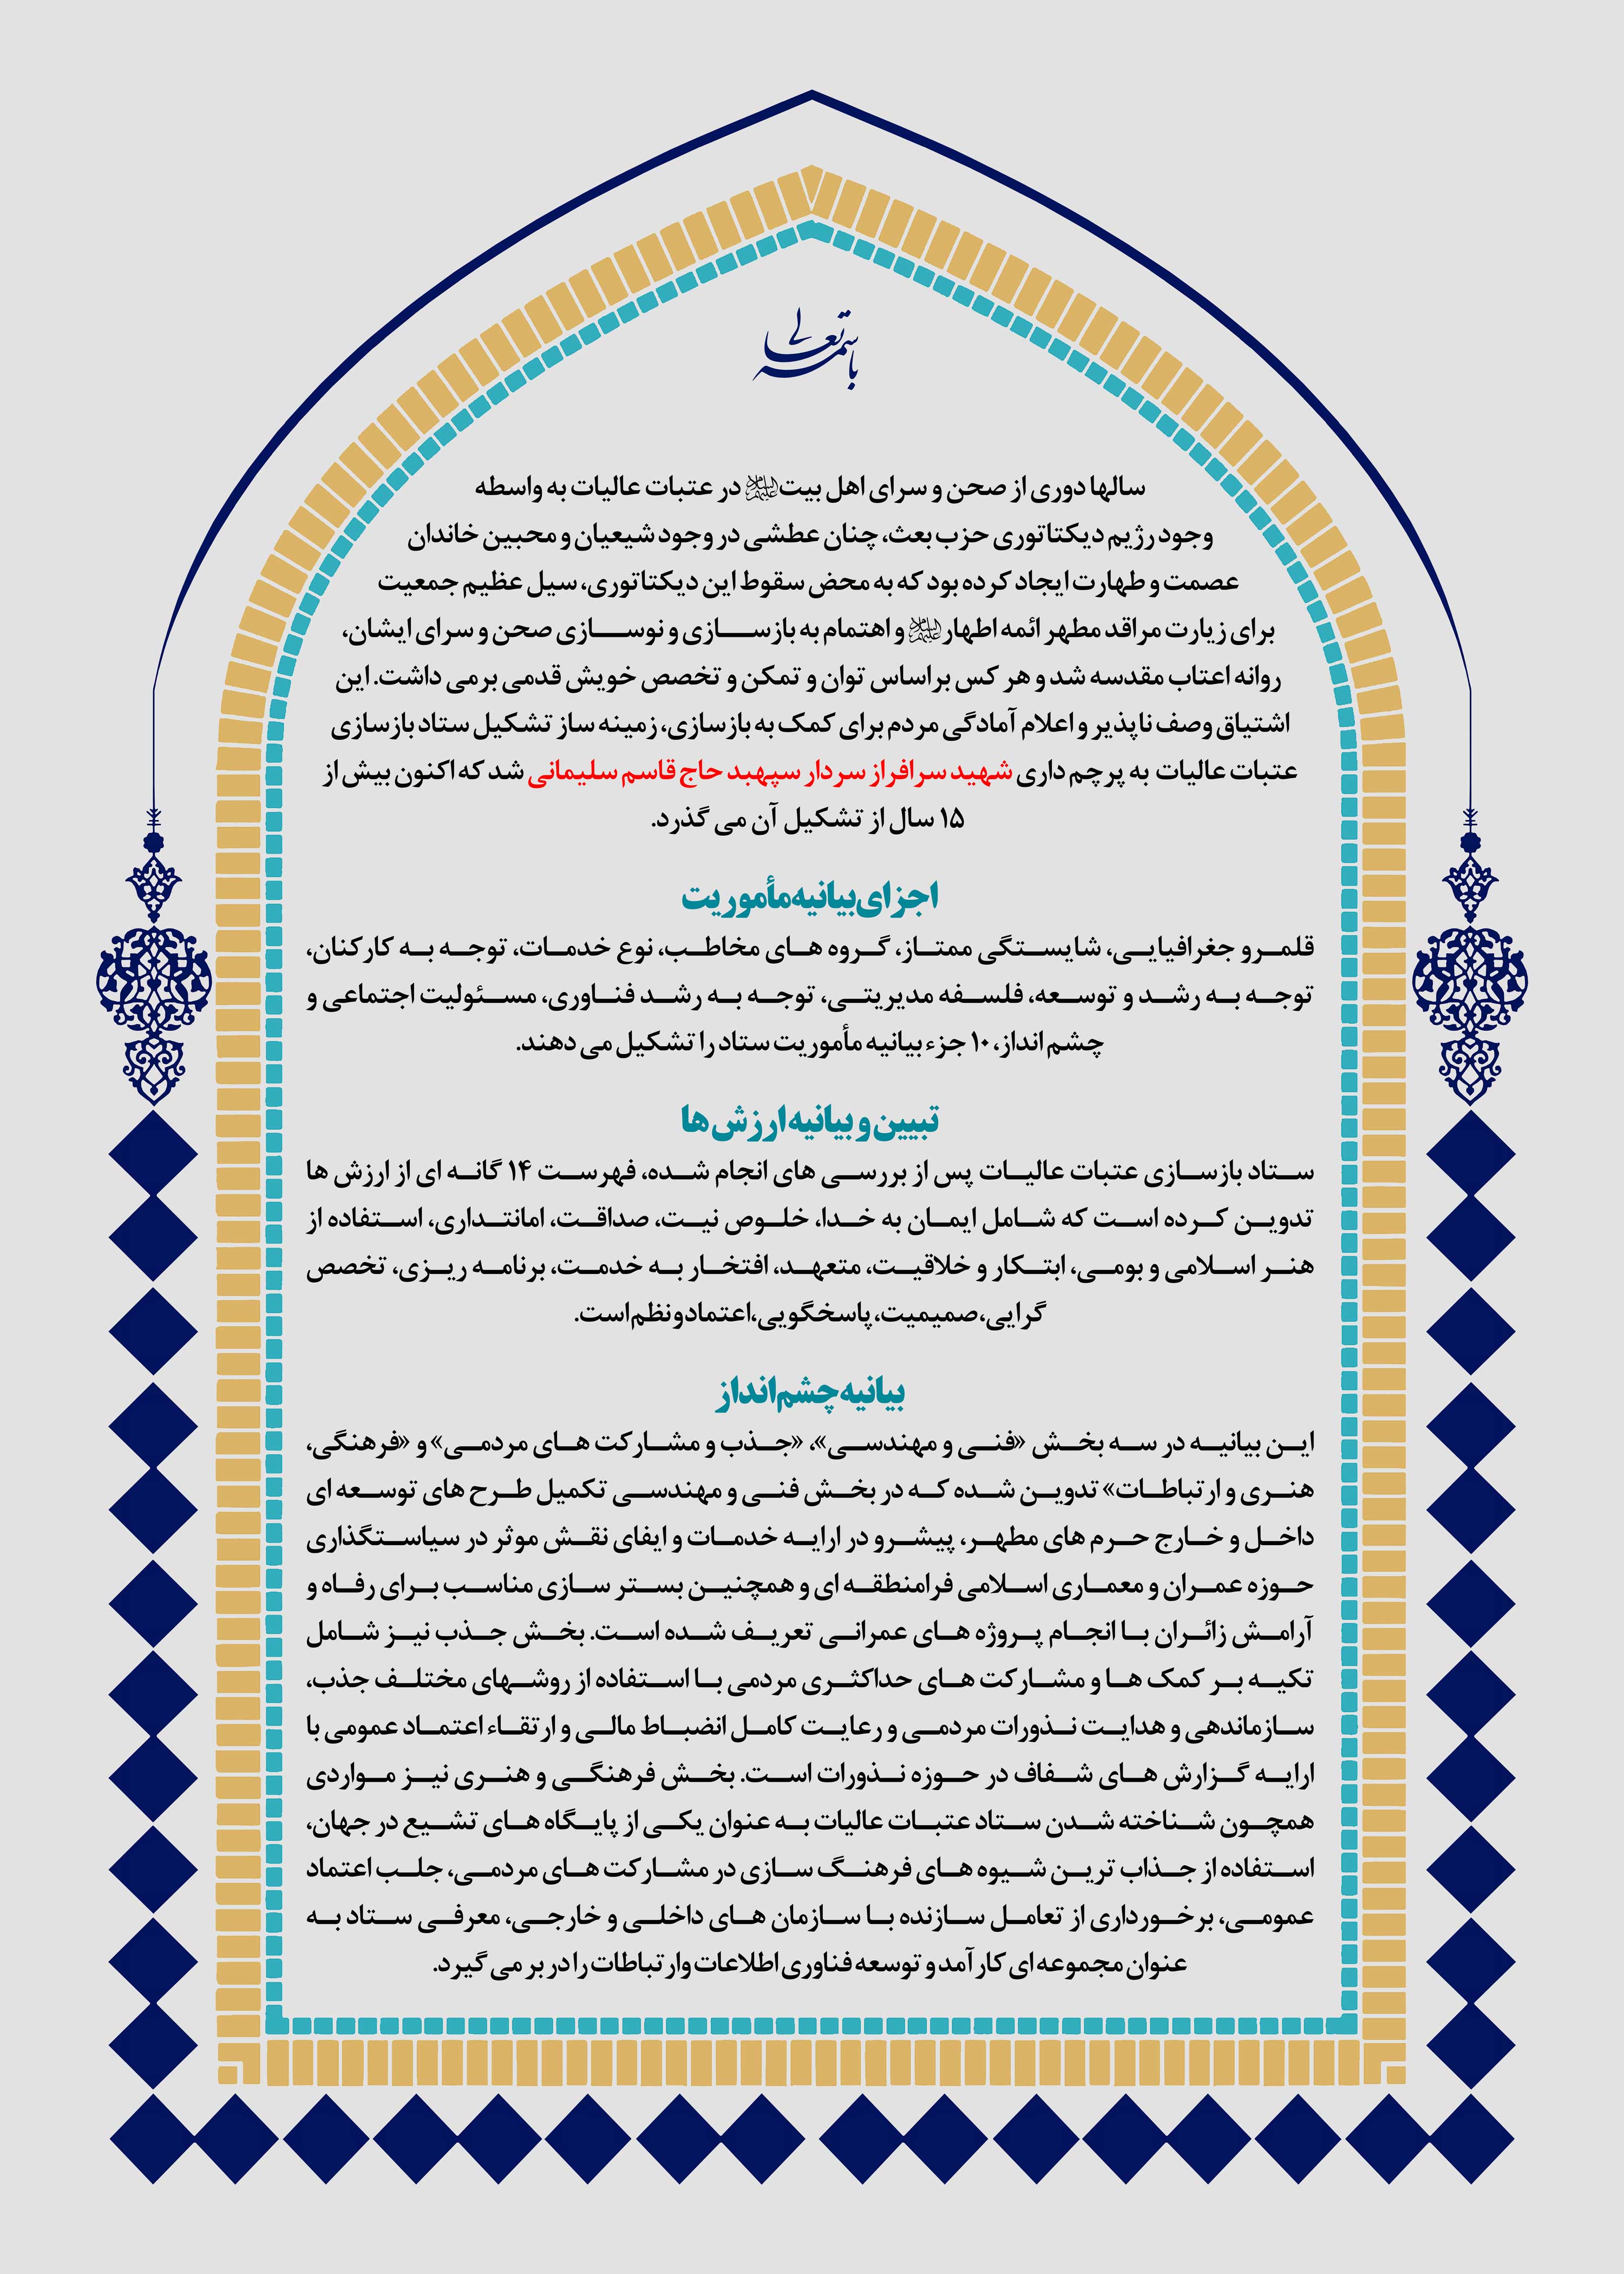 باسمه تعالی
سالها دوری از صحن و سرای اهل بیت علیهم السلام در عتبات عالیات به واسطه
وجود رژیم دیکتاتوری حزب بعث، چنان عطشی در وجود شیعیان و محبین خاندان
عصمت و طهارت ایجاد کرده بود که به محض سقوط این دیکتاتوری، سیل عظیم جمعیت
برای زیارت مراقد مطهر ائمه اطهار علیهم السلام و اهتمام به بازسازی و نوسازی صحن و سرای ایشان،
روانه اعتاب مقدسه شد و هر کس براساس توان و تمکن و تخصص خویش قدمی برمی داشت. این
اشتیاق وصف ناپذیر و اعلام آمادگی مردم برای کمک به بازسازی، زمینه ساز تشکیل ستاد بازسازی
عتبات عالیات به پرچم داری شهید سرافراز سردار سپهبد حاج قاسم سلیمانی شد که اکنون بیش از
۱۵ سال از تشکیل آن می گذرد.
اجزای بیانیه مأموریت
قلمرو جغرافیایی، شایستگی ممتاز، گروه های مخاطب، نوع خدمات، توجه به کارکنان،
توجه به رشد و توسعه، فلسفه مدیریتی، توجه به رشد فناوری، مسئولیت اجتماعی و
چشم انداز، ۱۰ جزء بیانیه مأموریت ستاد را تشکیل می دهند.
تبیین و بیانیه ارزش ها
ستاد بازسازی عتبات عالیات پس از بررسی های انجام شده، فهرست ۱۴ گانه ای از ارزش ها
تدوین کرده است که شامل ایمان به خدا، خلوص نیت، صداقت، امانتداری، استفاده از
هنر اسلامی و بومی، ابتکار و خلاقیت، متعهد، افتخار به خدمت، برنامه ریزی، تخصص
گرایی، صمیمیت، پاسخگویی، اعتماد و نظم است.
بیانیه چشم انداز
این بیانیه در سه بخش «فنی و مهندسی»، «جذب و مشارکت های مردمی» و «فرهنگی،
هنری و ارتباطات» تدوین شده که در بخش فنی و مهندسی تکمیل طرح های توسعه ای
داخل و خارج حرم های مطهر، پیشرو در ارایه خدمات و ایفای نقش موثر در سیاستگذاری
حوزه عمران و معماری اسلامی فرامنطقه ای و همچنین بستر سازی مناسب برای رفاه و
آرامش زائران با انجام پروژه های عمرانی تعریف شده است. بخش جذب نیز شامل
تکیه بر کمک ها و مشارکت های حداکثری مردمی با استفاده از روشهای مختلف جذب،
سازماندهی و هدایت نذورات مردمی و رعایت کامل انضباط مالی و ارتقاء اعتماد عمومی با
ارایه گزارش های شفاف در حوزه نذورات است. بخش فرهنگی و هنری نیز مواردی
همچون شناخته شدن ستاد عتبات عالیات به عنوان یکی از پایگاه های تشیع در جهان،
استفاده از جذاب ترین شیوه های فرهنگ سازی در مشارکت های مردمی، جلب اعتماد
عمومی، برخورداری از تعامل سازنده با سازمان های داخلی و خارجی، معرفی ستاد به
عنوان مجموعه ای کارآمد و توسعه فناوری اطلاعات و ارتباطات را در بر می گیرد.